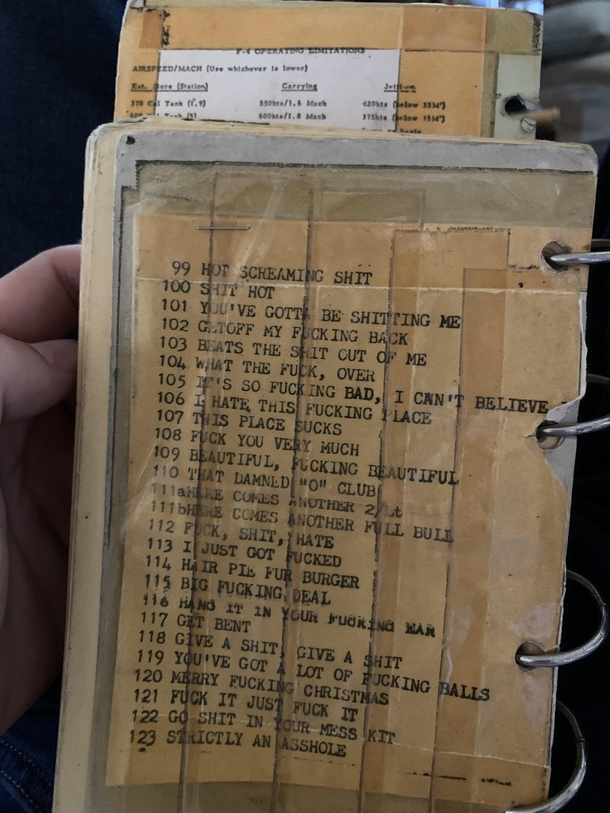 F-4 OPERATING LIMITATIONS
AIRSPEED/MACH (Use whichever is lower)
Ext. Store (Station) Carrying Jettison
370 Cal Tank (1,9) 550kts/1.6 Mach 420kts (below 35M')
Tank (5) 600kts/1.8 Mach 375kts (below 15M')
99 HOT SCREAMING SHIT
100 SHIT HOT
101 YOU'VE GOTTA BE SHITTING ME
102 GETOFF MY FUCKING BACK
103 BEATS THE SHIT OUT OF ME
104 WHAT THE FUCK, OVER
105 IT'S SO FUCKING BAD, I CAN'T BELIEVE
106 I HATE THIS FUCKING PLACE
107 THIS PLACE SUCKS
108 FUCK YOU VERY MUCH
109 BEAUTIFUL, FUCKING BEAUTIFUL
110 THAT DAMNED "O" CLUB
111aHERE COMES ANOTHER 2/Lt
111bHERE COMES ANOTHER FULL BULL
112 FUCK, SHIT, HATE
113 I JUST GOT FUCKED
114 HAIR PIE FUR BURGER
115 BIG FUCKING DEAL
116 HANG IT IN YOUR FUCKING EAR
117 GET BENT
118 GIVE A SHIT, GIVE A SHIT
119 YOU'VE GOT A LOT OF FUCKING BALLS
120 MERRY FUCKING CHRISTMAS
121 FUCK IT JUST FUCK IT
122 GO SHIT IN YOUR MESS KIT
123 STRICTLY AN ASSHOLE